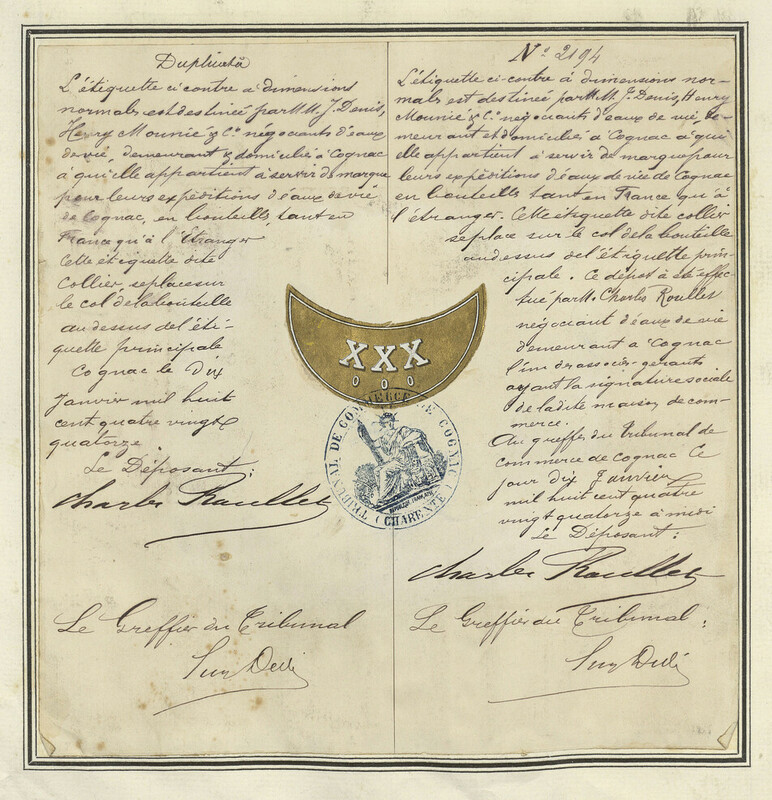 Duplicata
L'étiquette ci contre à dimensions
normales est destinée par MM. J. Denis,
Henry Mounié & Cie négociants d'eaux
de vie, demeurant & domiciliés à Cognac
à qui elle appartient à servir de marque
pour leurs expéditions d'eaux de vie
de Cognac, en bouteilles, tant en
France qu'à l'Étranger
Cette étiquette dite
Collier, se place sur
le col de la bouteille
au dessus de l'éti-
quette principale
Cognac le Dix
Janvier mil huit
cent quatre vingt
quatorze
Le Déposant:
Charles Roullet
Le Greffier du Tribunal
No 2194
L'étiquette ci-contre à dimensions nor-
males est destinée par MM. J. Denis, Henry
Mounié & Cie négociants d'eaux de vie, de-
meurant et domiciliés à Cognac à qui
elle appartient à servir de marque pour
leurs expéditions d'eaux de vie de Cognac
en bouteilles tant en France qu'à
l'étranger. Cette étiquette dite collier
se place sur le col de la bouteille
au dessus de l'étiquette prin-
cipale. Ce dépôt a été effec-
tué par M. Charles Roullet
négociant d'eaux de vie
demeurant à Cognac
l'un des associés-gérants
ayant la signature sociale
de ladite maison de com-
merce.
Au greffe du Tribunal de
commerce de Cognac Ce
jour dix Janvier
mil huit cent quatre
vingt quatorze à midi
Le Déposant:
Charles Roullet
Le Greffier du Tribunal:
XXX
000
TRIBUNAL DE COMMERCE DE COGNAC
RÉPUBLIQUE FRANÇAISE
(CHARENTE)